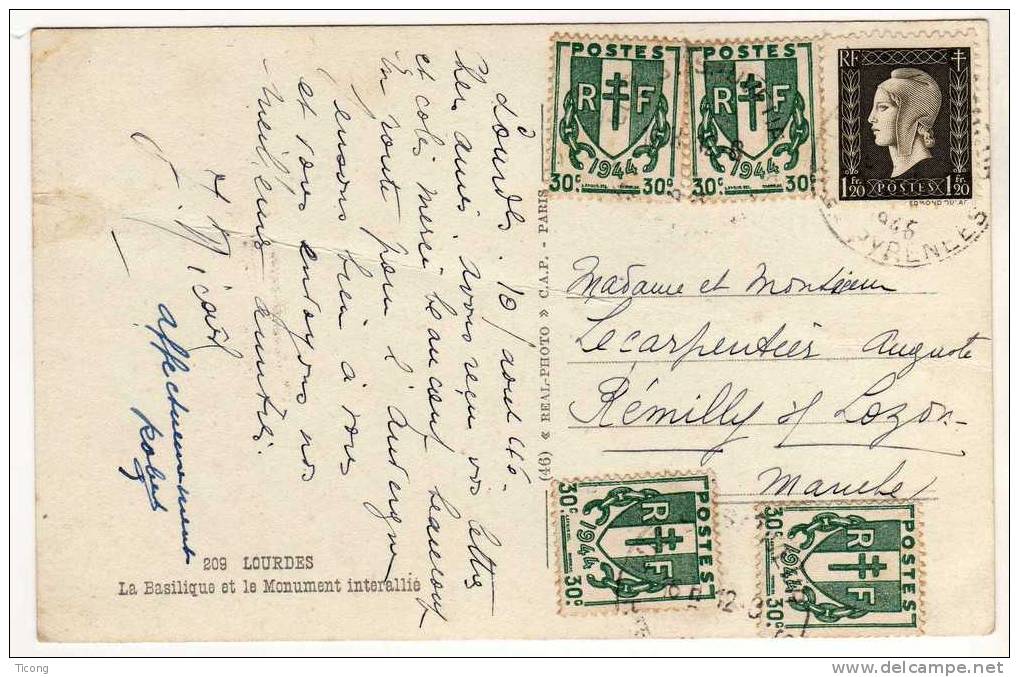 Lourdes. 10/aout 46.
Chers amis. Avons reçu vos lettres
et colis merci beaucoup beaucoup
En route pour l'Auvergne
pensons bien à vous
et vous envoyons nos
meilleures amitiés.
affectueusement
209 LOURDES
La Basilique et le Monument interallié
(46) « REAL-PHOTO » C.A.P. - PARIS
POSTES
RF
1944
30c 30c
POSTES
RF
1944
30c 30c
RF
1 Fr. 20 POSTES 1 Fr. 20
946
PYRENEES
Madame et Monsieur
Lecarpentier Auguste
Rémilly s/ Lozon
Manche
POSTES
RF
1944
30c 30c
POSTES
RF
1944
30c 30c
Ticong
www.delcampe.net